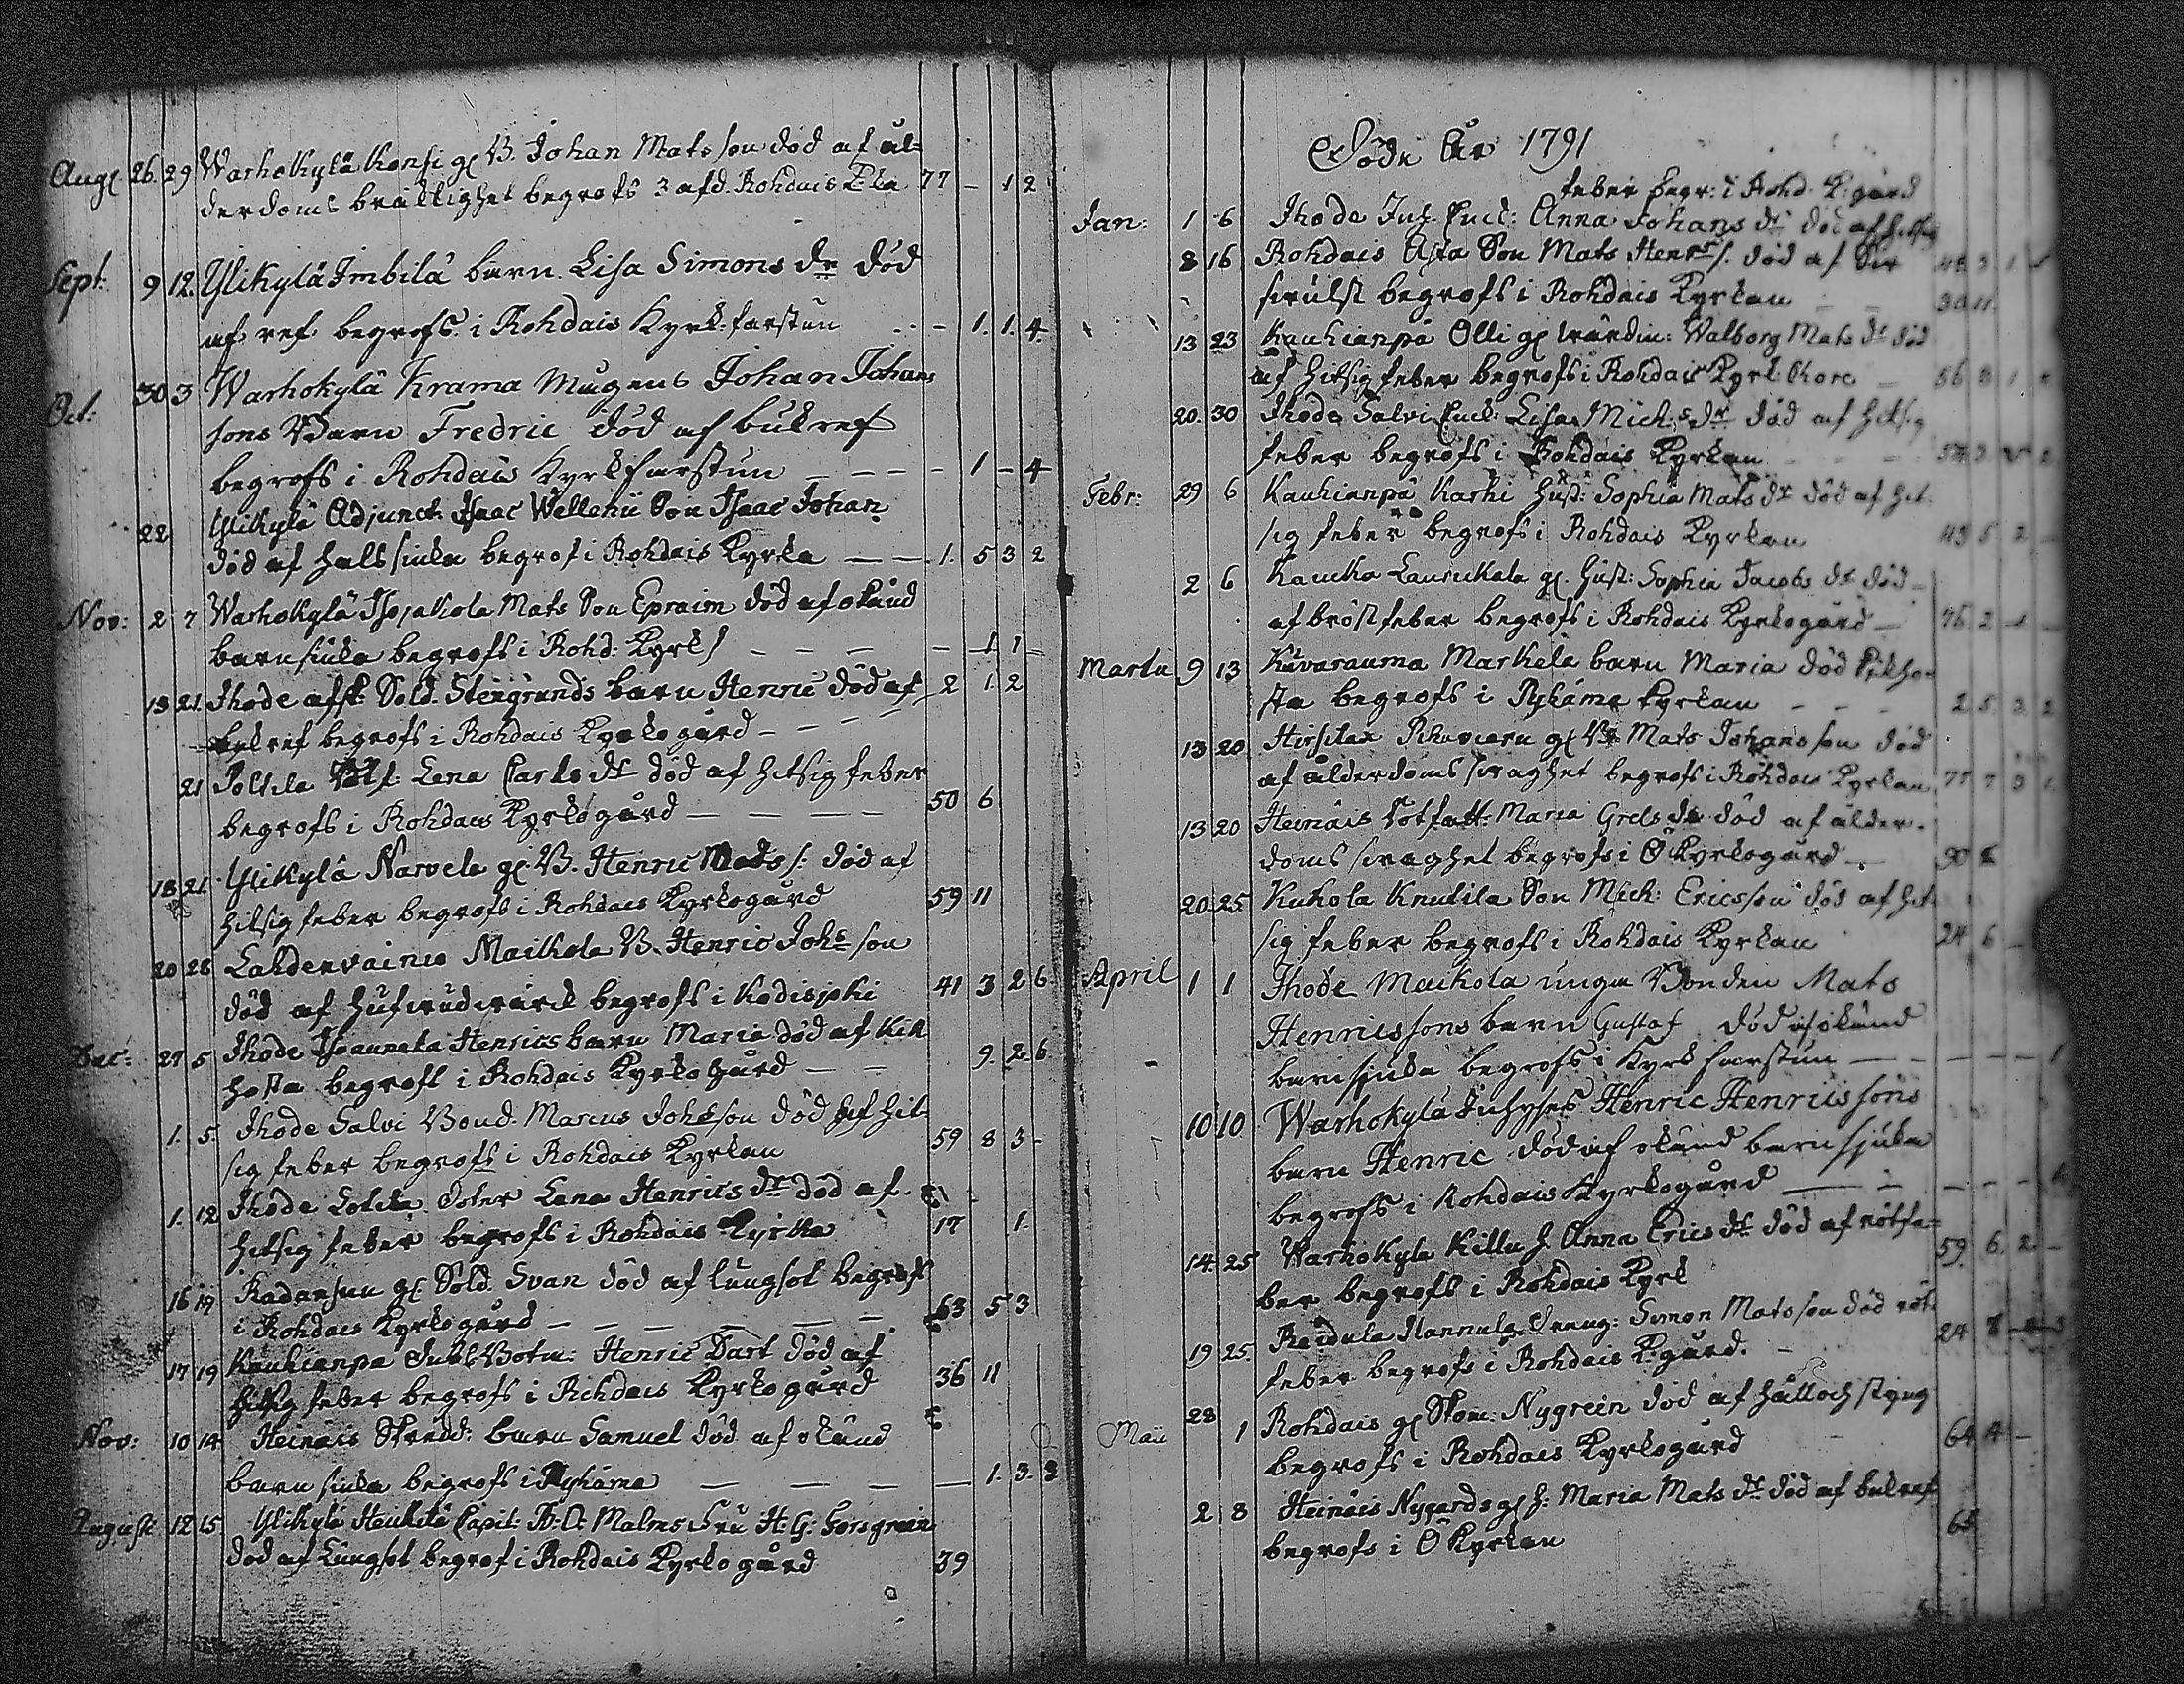 Aug 26. 29 Warhokylä Konsi gl B. Johan Matsson död af ål=
derdoms bräcklighet begrofs 3 afd. Rohdais K:ka 77 – 1 2
Sept: 9 12. Ylikylä Imbilä barn Lisa Simons dr död
af ref begrofs i Rohdais Kyrk:farstun – 1. 1. 4.
Oct: 30 3 Warhokylä Krama Mågens Johan Johans
sons Barn Fredric död af bukref
begrofs i Rohdais Kyrkfarstun – – – – 1 – 4
22 Ylikylä Adjunct. Isaac Wellenii Son Isaac Johan
död af halssiuka begrof i Rohdais Kyrka – – 1. 5 3 2
Nov: 2 7 Warhokylä Mats Son Epraim död af okänd
barnsiuka begrofs i Rohd: Kyrk – – – – 1 1 –
13 21. Ihode afsk: Sold. Stengrunds barn Henric död af 2 1. 2
bukref begrofs i Rohdais Kyrkogård – – –
21 Poltila Lena Carls dr död af hetsig feber
begrofs i Rohdais Kyrkogård – – – – 50 6
18 21. Ylikylä Narvela gl B. Henric Mats s: död af
hitsig feber begrofs i Rohdais Kyrkogård 59 11
20 28 Lahdenvainio Maikola B. Henric Johs son
död af hufwudwärck begrofs i Kodisjoki 41 3 2 6
Dec: 27 5 Ihode Henrics barn Maria död af Kik
hosta begrofs i Rohdais Kyrko Gård – – 9. 2. 6
1. 5. Ihode Salvi Bond. Marcus Johsson död af hit
sig feber begrofs i Rohdais Kyrkan 59 8 3 –
1. 12 Ihode Lena Henrics dr död af
hitsig feber begrofs i Rohdais Kyrka 17 1.
16 19 Radansuu gl: Sold. Svan död af lungsot begrofs
i Rohdais Kyrkogård – – – – – – 63 5 3
17 19 Kauhianpä Botm: Henric Dart död af
hitsig feber begrofs i Rohdais Kyrkogård 36 11
Nov: 10 14 Heinäis Skredd: barn Samuel död af okänd
barnsiuka begrofs i Pyhäma – – – – 1. 3. 3
August 12 15 Ylikylä Heikilä Capit: Malms Fru H: G: Forsgrein
död af Lungsot begrof i Rohdais Kyrkogård 39
Döde År 1791
feber begr: i Rohd. K:gård
Jan: 1 6 Ihode Inh. Enck: Anna Johans dr död af hitsig
8 16 Rohdais Son Mats Henr s. död af
swulst begrofs i Rohdais Kyrkan 30 11.
13 23 Kauhianpä Olli gl wärdin: Walborg Mats dr död
af hitsig feber begrofs i Rohdais Kyrk: Chore – 56
20. 30 Ihode Salvi Enck: Lisa Mich:s dr död af hitsig
feber begrofs i Rohdais Kyrkan
Febr: 29 6 Kauhianpä Karhi Hust: Sophia Mats dr död af hit
sig feber begrofs i Rohdais Kyrkan 43 5 2 –
2 6 Kaucka Laurickala gl. Hust: Sophia Jacobs dr död
af bröstfeber begrofs i Rohdais Kyrkogård – 76 2 – –
Martii 9 13 Kuvarauma Markela barn Maria död Kikho=
sta begrofs i Pyhäma Kyrkan – – – 2 5. 3. 2
13 20 Hirsilax gl Br Mats Johansson död
af ålderdoms swaghet begrofs i Rohdais Kyrkan 77 7 3 1.
13 20 Heinäis Rotfatt: Maria Grels dr död af ålder=
doms swaghet begrofs i Ö Kyrkogård – 90
20 25 Kukola Knutila Son Mich: Ericsson död af hit
sig feber begrofs i Rohdais Kyrkan 24 6 –
April 1 1 Ihode Maikola unga Bonden Mats
Henricssons barn Gustaf död af okänd
barnsjuka begrofs i Kyrkfarstun – – – – – 1
10 10 Warhokylä Inhyses Henric Henricssons
barn Henric död af okänd barnsjuka
begrofs i Rohdais Kyrkogård – – – – – –
14 25 Warhokyla Killu h. Anna Erics dr död af rötfe=
ber begrofs i Rohdais Kyrk 59. 6. 2 –
19 25. Raidula Hannula Dreng: Simon Matsson död röt
feber begrofs i Rohdais K:gård. – 24 8
Maii 28 1 Rohdais gl Skom: Nygrein död af håll och styng
begrofs i Rohdais Kyrkogård 64 4 –
2 8 Heinäis Nygårds gl h: Maria Mats dr död af bukref
begrofs i Ö Kyrkan 65